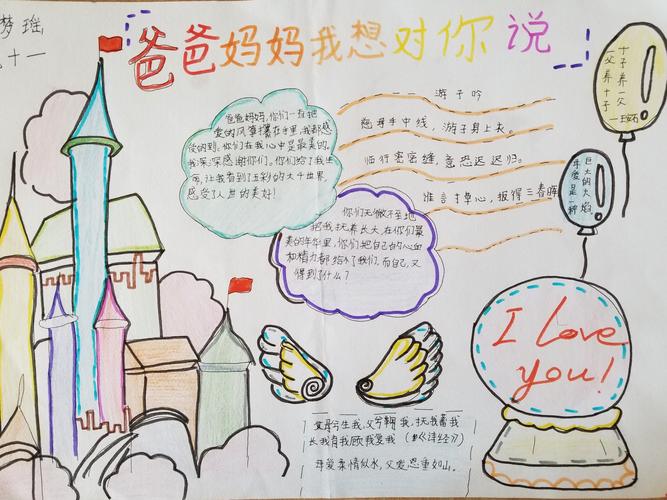 梦瑶
十一
爸爸妈妈我想对你说
爸爸妈妈,你们一直把
爱的风筝攥在手里,我都感
受的到。你们在我心中是最美的,
我深深感谢你们。你们给了我生
命,让我看到了五彩的大千世界
感受了人世的美好!
你们无微不至地
把我抚养长大,在你们最
美的年华里,你们把自己的心血
和精力都给了我们,而自己,又
得到了什么?
游子吟
慈母手中线,游子身上衣。
临行密密缝,意恐迟迟归。
谁言寸草心,报得三春晖
十子养一父
一父养十子
巨大的火焰
母爱是一种
I love
you!
母兮生我,父兮鞠我,抚我蓄我
长我育我顾我爱我(《诗经》)
母爱柔情似水,父爱恩重如山。